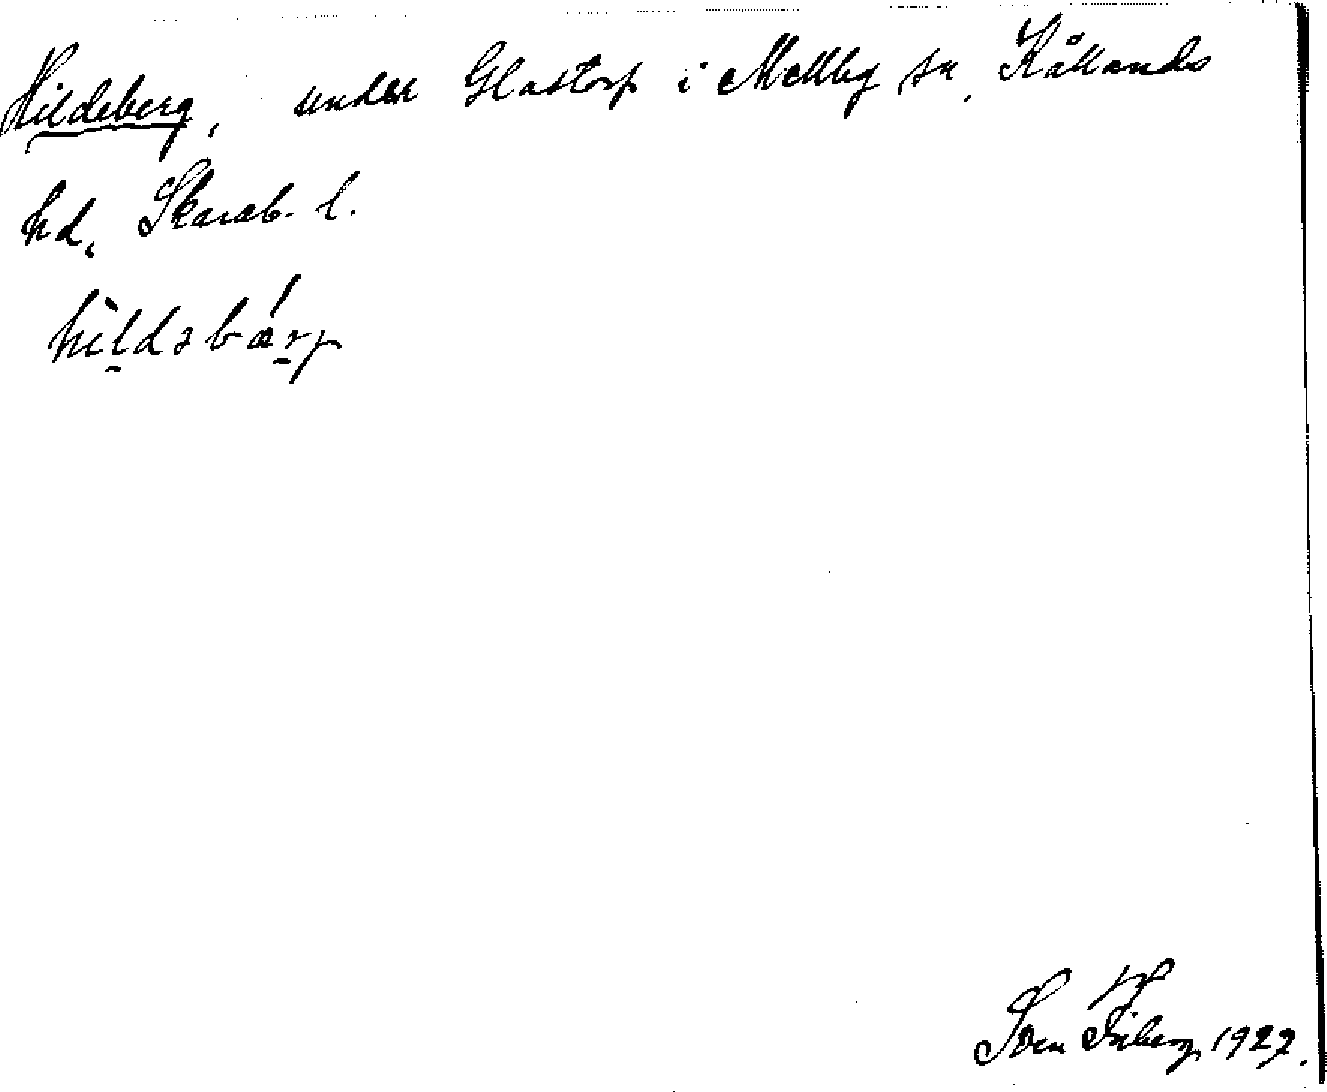 Hildeberg, under Glastorp i Mellby sn, Kållands
hd, Skarab. l.
Sven Friberg 1927.